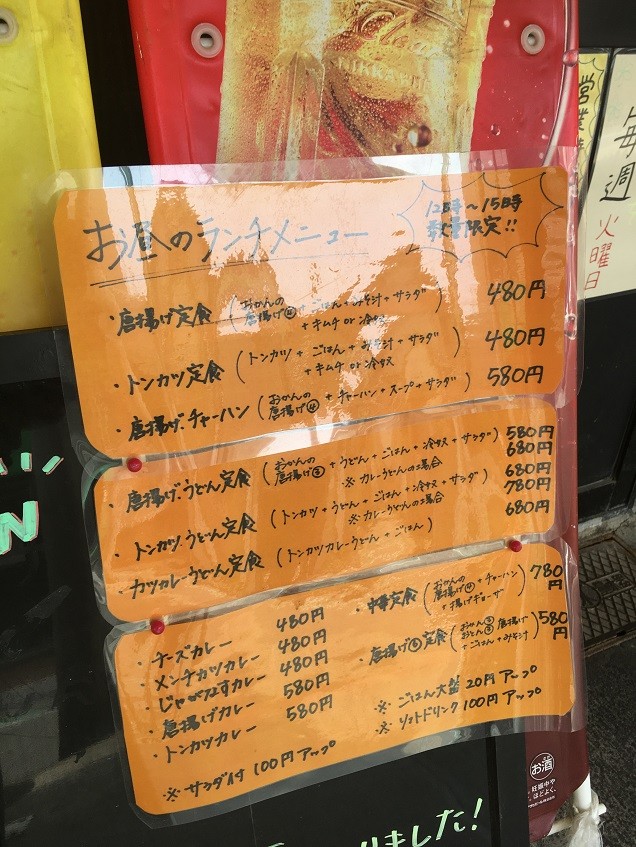 お昼のランチメニュー
12時〜15時
数量限定!!
・唐揚げ定食 (おかんの唐揚げ④+ごはん+みそ汁+サラダ 480円
+キムチor冷奴)
・トンカツ定食 (トンカツ+ごはん+みそ汁+サラダ 480円
+キムチor冷奴)
・唐揚げ・チャーハン (おかんの唐揚げ④+チャーハン+スープ+サラダ) 580円
・唐揚げ・うどん定食 (おかんの唐揚げ③+うどん+ごはん+冷奴+サラダ) 580円
※カレーうどんの場合 680円
・トンカツ・うどん定食 (トンカツ+うどん+ごはん+冷奴+サラダ) 680円
※カレーうどんの場合 780円
・カツカレーうどん定食 (トンカツカレーうどん+ごはん) 680円
・チーズカレー 480円
・メンチカツカレー 480円
・じゃがコーンカレー 480円
・唐揚げカレー 580円
・トンカツカレー 580円
※サラダ付 100円アップ
・中華定食 (おかんの唐揚げ④+チャーハン 780円
+揚げギョーザ)
・唐揚げ 定食 (おかん おとん 唐揚げ 580円
+ごはん+みそ汁)
※ごはん大盛 20円アップ
※ソフトドリンク 100円アップ
営業
毎週
火曜日
お酒
妊娠中や
はほどよく。
N
りました!